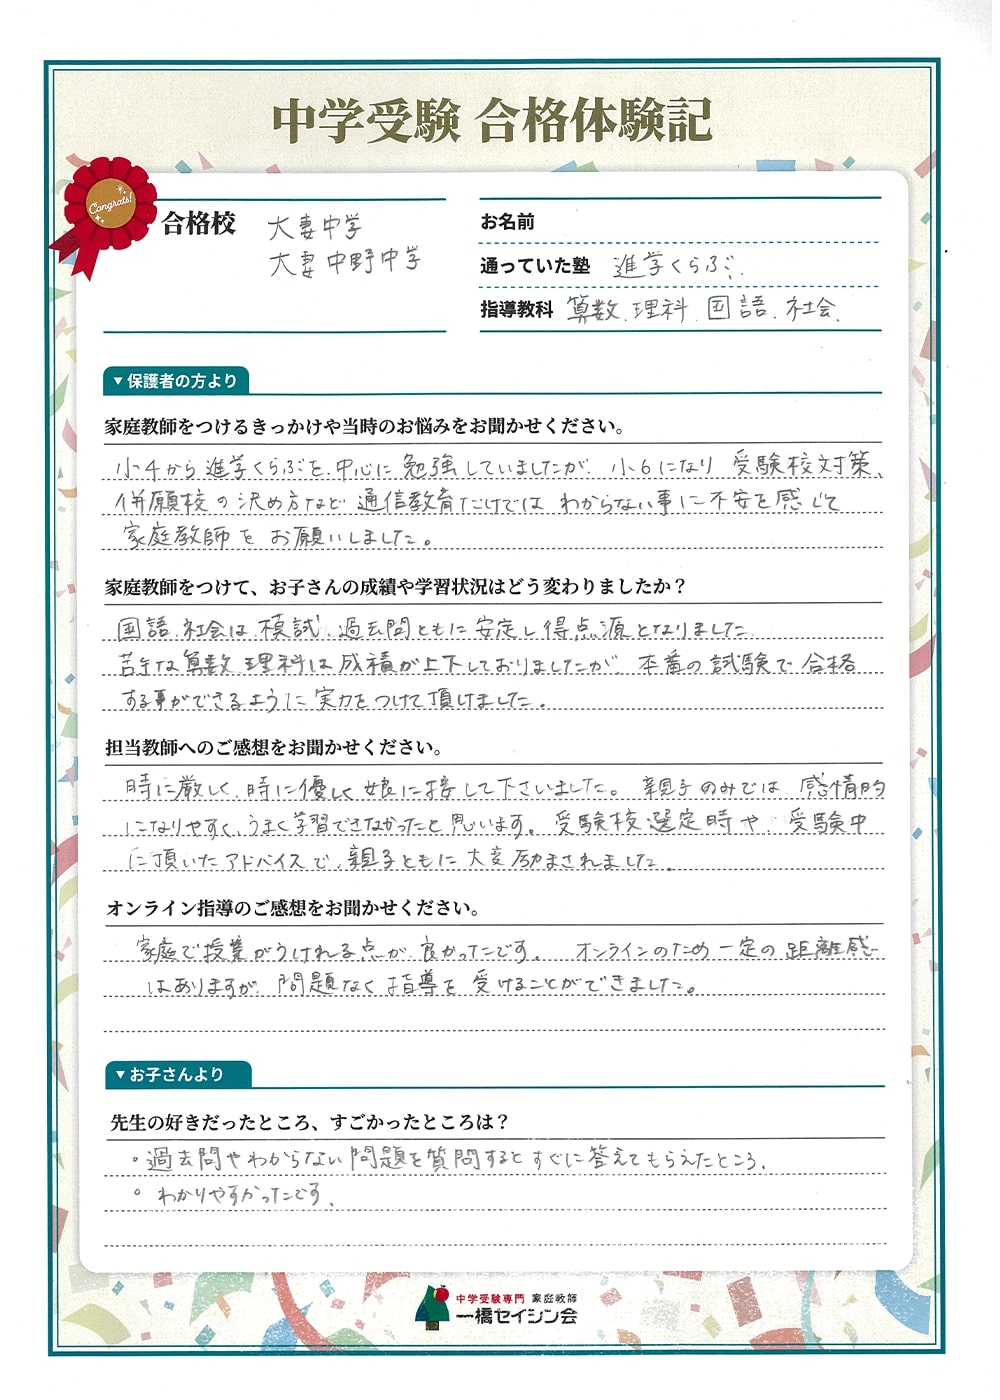 中学受験 合格体験記
Congrats!
合格校 大妻中学
大妻中野中学
お名前
通っていた塾 進学くらぶ、
指導教科 算数、理科、国語、社会、
▼保護者の方より
家庭教師をつけるきっかけや当時のお悩みをお聞かせください。
小4から進学くらぶを中心に勉強していましたが、小6になり受験校対策、
併願校の決め方など通信教育だけではわからない事に不安を感じて
家庭教師をお願いしました。
家庭教師をつけて、お子さんの成績や学習状況はどう変わりましたか？
国語、社会は模試、過去問ともに安定し得点源となりました
苦手な算数、理科は成積が上下しておりましたが、本番の試験で合格
する事ができるように実力をつけて頂けました。
担当教師へのご感想をお聞かせください。
時に厳しく、時に優しく娘に接して下さいました。親子のみでは、感情的
になりやすく、うまく学習できなかったと思います。受験校選定時や、受験中
に頂いたアドバイスで、親子ともに大変励まされました。
オンライン指導のご感想をお聞かせください。
家庭で授業がうけれる点が、良かったです。オンラインのため一定の距離感
はありますが、問題なく指導を受けることができました。
▼お子さんより
先生の好きだったところ、すごかったところは？
。過去問やわからない問題を質問するとすぐに答えてもらえたところ、
。わかりやすかったです、
中学受験専門 家庭教師
一橋セイシン会